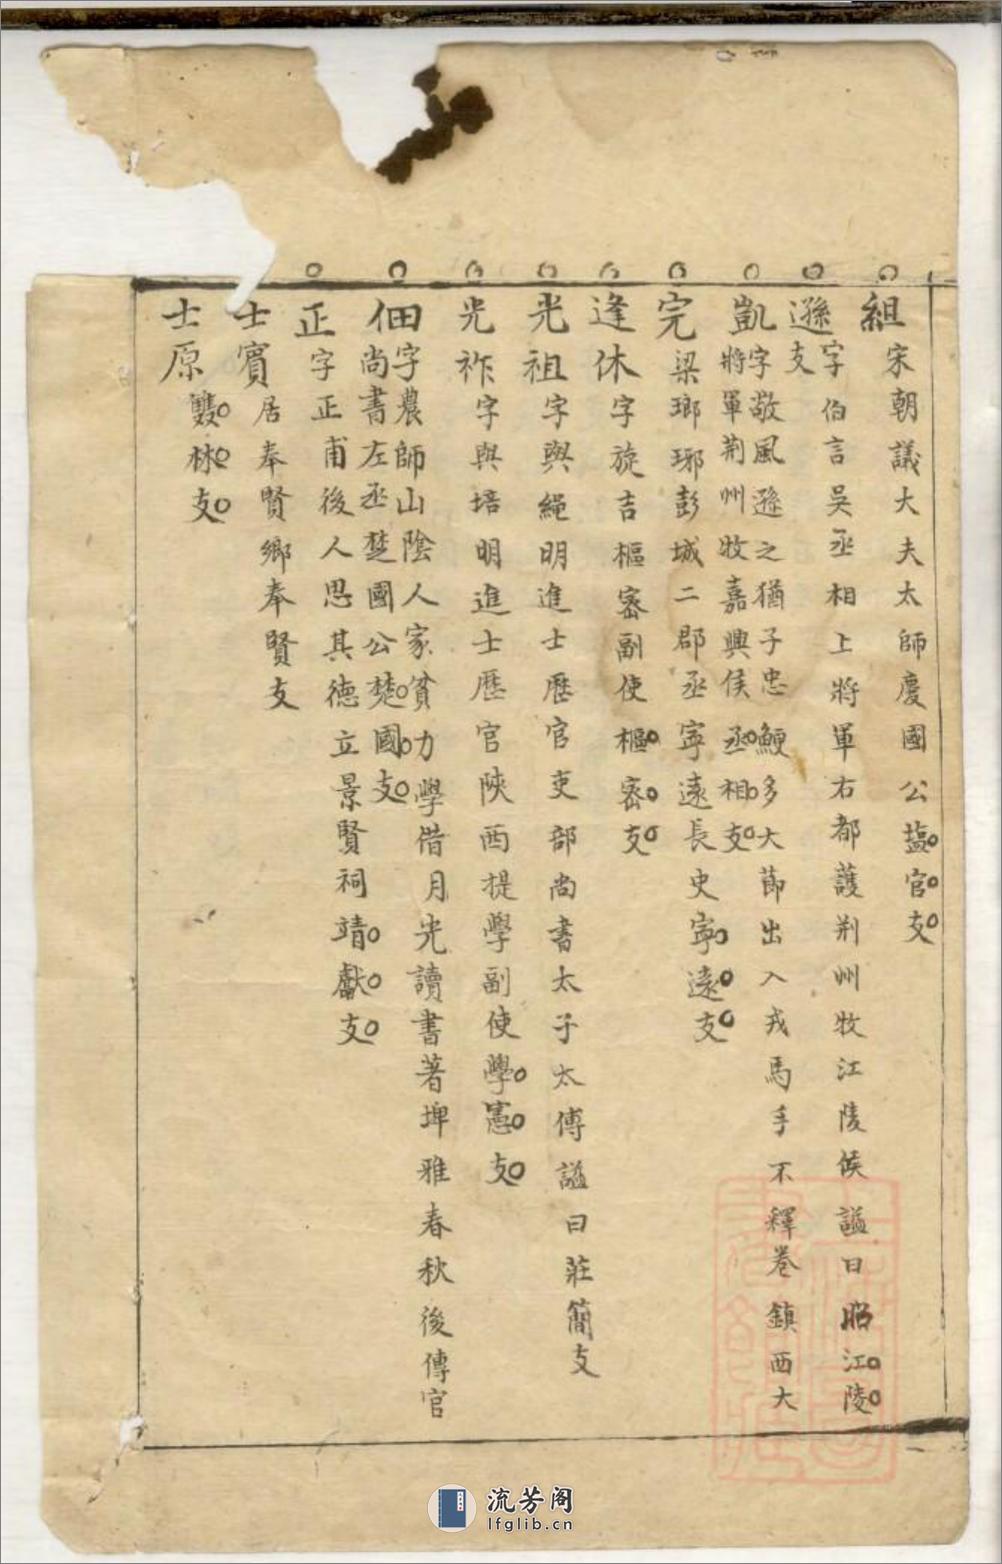 組宋朝議大夫太師慶國公塩官支
遜字伯言吳丞相上將軍右都護荆州牧江陵侯謚曰昭江陵
支
凱字敬風遜之猶子忠鯁多大節出入戎馬手不釋卷鎮西大
將軍荆州牧嘉興侯丞相支
完梁瑯琊彭城二郡丞寧遠長史寧遠支
逢休字旋吉樞密副使樞密支
光祖字與繩明進士歷官吏部尚書太子太傅謚曰莊簡支
光祚字與培明進士歷官陝西提學副使學憲支
佃字農師山陰人家貧力學借月光讀書著埤雅春秋後傳官
尚書左丞楚國公楚國支
正字正甫後人思其德立景賢祠靖獻支
士賓居奉賢鄉奉賢支
士原雙林支
流芳阁
lfglib.cn